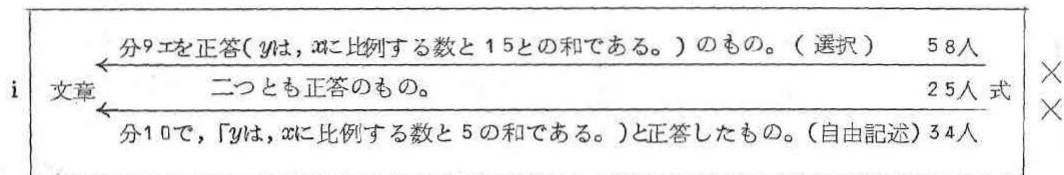 分9エを正答(yは,xに比例する数と15との和である。)のもの。(選択) 58人
i 文章 二つとも正答のもの。 25人 式 ××
分10で,「yは,xに比例する数と5の和である。)と正答したもの。(自由記述)34人